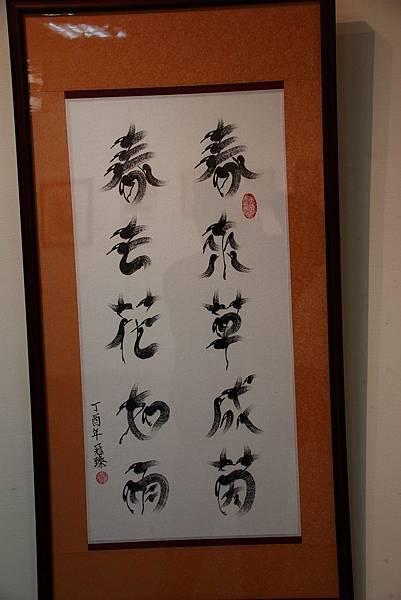 春來草成茵
春去花如雨
丁酉年冠臻